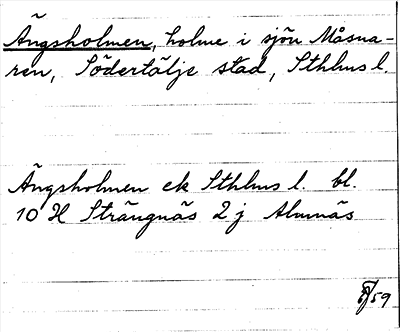 Ängsholmen, holme i sjön Måsna-
ren, Södertälje stad, Sthlms l.
Ängsholmen ek Sthlms l. bl.
10 H Strängnäs 2 j Almnäs
59